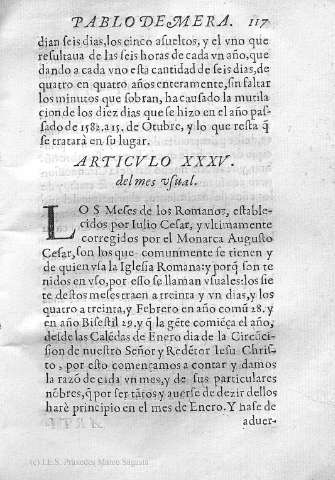 PABLO DE MERA. 117
dian seis dias, los cinco asueltos, y el vno que
resultaua de las seis horas de cada vn año, que
dando a cada vno esta cantidad de seis dias, de
quatro en quatro años enteramente, sin faltar
los minutos que sobran, ha causado la mutila
cion de los diez dias que se hizo en el año pas-
sado de 1582. a 15. de Otubre, y lo que resta q̃
se tratarà en su lugar.
ARTICVLO XXXV.
del mes vsual.
LOS Meses de los Romanos, estable-
cidos por Iulio Cesar, y vltimamente
corregidos por el Monarca Augusto
Cesar, son los que comunmente se tienen y
de quien vsa la Iglesia Romana: y porq̃ son te
nidos en vso, por esso se llaman vsuales: los sie
te destos meses traen a treinta y vn dias, y los
quatro a treinta, y Febrero en año comũ 28. y
en año Bisestil 29. q̃ la gẽte comiẽça el año,
desde las Calẽdas de Enero dia de la Circũci-
sion de nuestro Señor y Redẽtor Iesu Chris-
to, por esto començamos a contar y damos
la razõ de cada vn mes, y de sus particulares
nõbres, q̃ por ser tãtos y auerse de dezir dellos
harè principio en el mes de Enero. Y hase de
aduer-
(c) I.E.S. Práxedes Mateo Sagasta